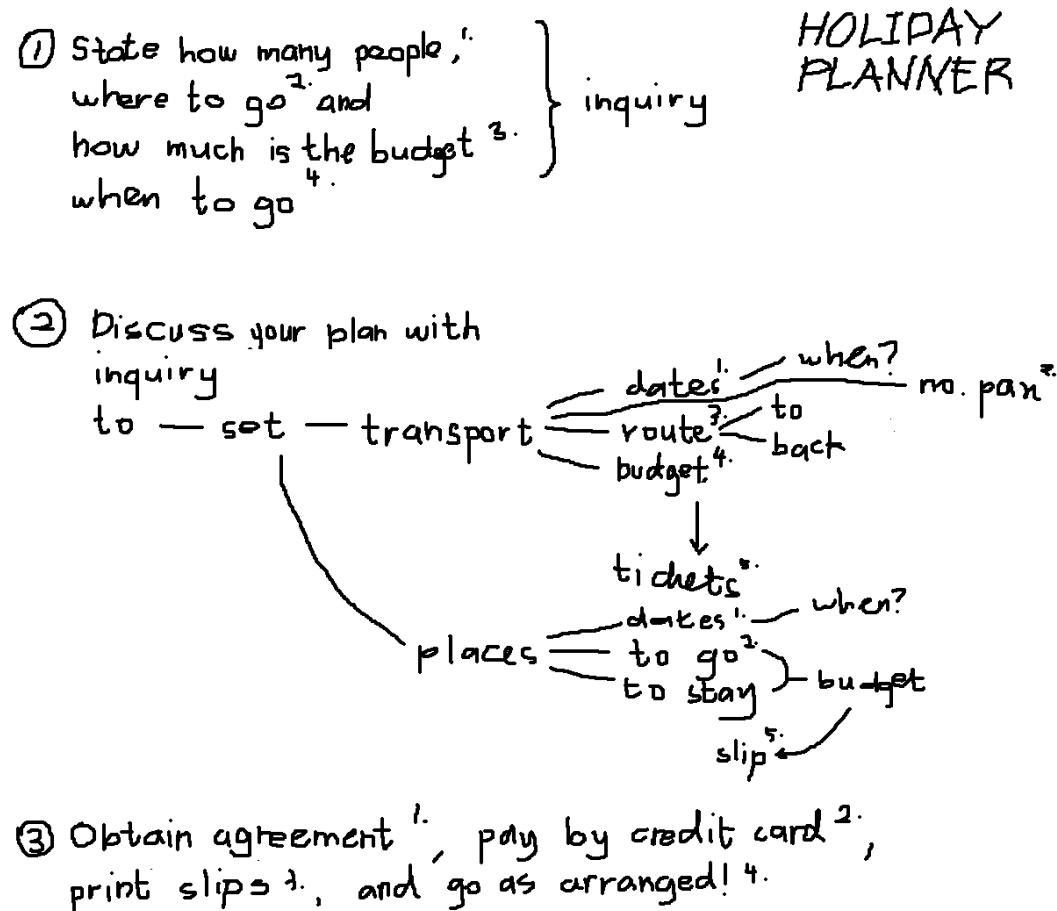 HOLIDAY
PLANNER
① State how many people,1.
where to go2. and
how much is the budget3.
when to go4.
inquiry
② Discuss your plan with
inquiry
to — set — transport
dates1. — when?
no. pax2.
route3. to
back
budget4.
tickets5.
places
dates1. — when?
to go2.
to stay
budget
slip5.
③ Obtain agreement1., pay by credit card2.,
print slips3., and go as arranged!4.